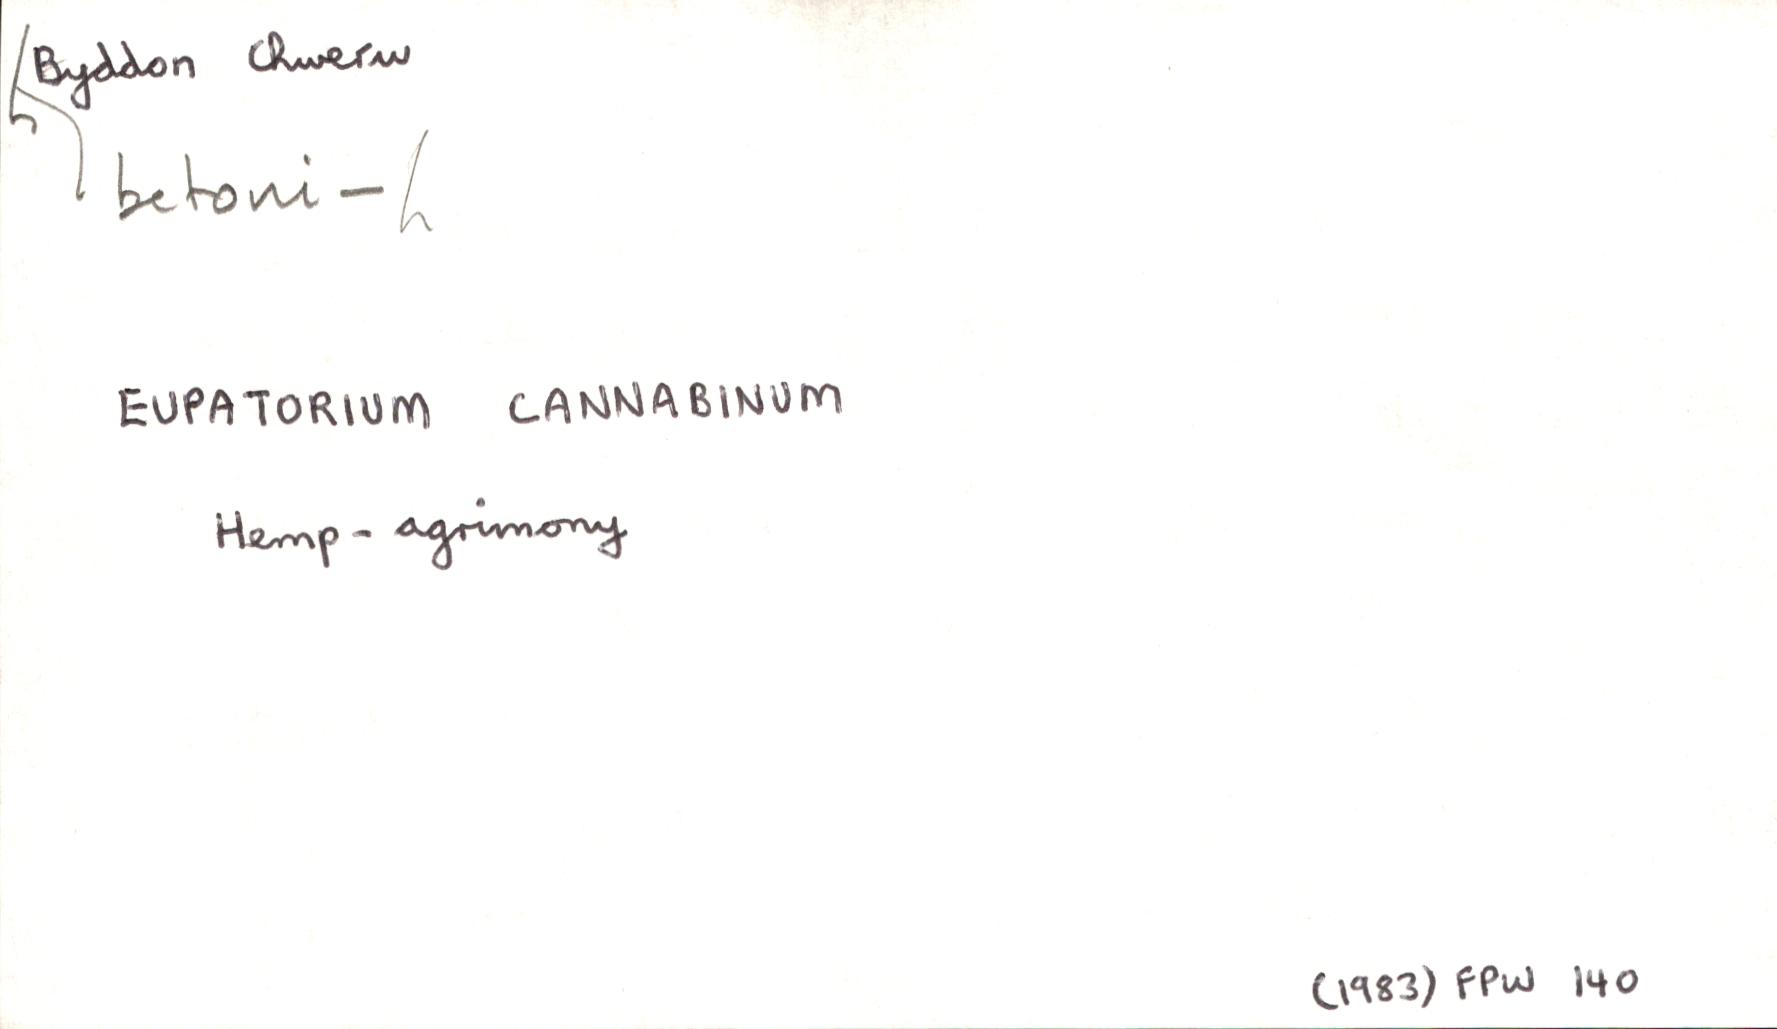 Byddon Chwerw
betoni –
EUPATORIUM CANNABINUM
Hemp-agrimony
(1983) FPW 140